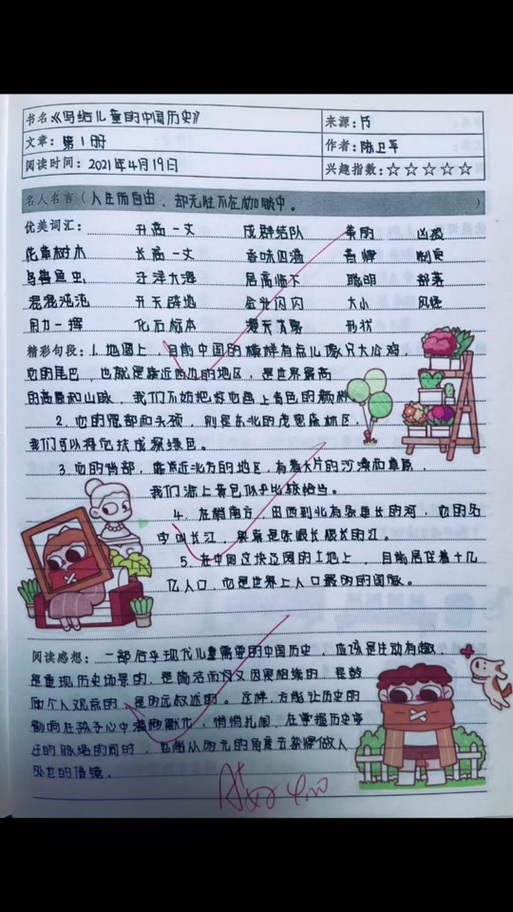 书名《写给儿童的中国历史》 来源:书
文章:第1册 作者:陈卫平
阅读时间:2021年4月19日 兴趣指数:☆☆☆☆☆
名人名言(人生而自由,却无往不在枷锁中。)
优美词汇: 开高一丈 成群结队 条约 凶猛
花草树木 长高一丈 香味四溢 首领 制度
鸟兽鱼虫 汪洋大海 居高临下 聪明 部落
混混沌沌 开天辟地 金光闪闪 大小 风俗
用力一挥 化石标本 漫天飞舞 形状
精彩句段:1.地图上,目前中国的模样有点儿像只大公鸡,
它的尾巴,也就是靠近西边的地区,是世界最高
的高原和山脉,我们不妨把它也画上青色的颜料
2.它的腿部和头颈,则是东北的茂密森林区,
我们可以将它技成深绿色。
3.它的背部,靠近北方的地区,有着大片的沙漠和草原,
我们涂上黄色似乎比较恰当。
4.在稍南方,由西到北有条里长的河,它的名
字叫长江,果真是条很长很长的江。
5.在中国这块辽阔的土地上,目前居住着十几
亿人口,也是世界上人口最多的国家。
阅读感想:一部合乎现代儿童需要的中国历史,应该是生动有趣,
是重现历史场景的,是简洁而内又因密相维的,是鼓
励个人观点的,是明远叙述的。这样,方能让历史的
影响在孩子心中潜移默化,悄悄扎根,在掌握历史事
迁的脉络的同时,也能从多元的角度去获得做人
处世的借镜。